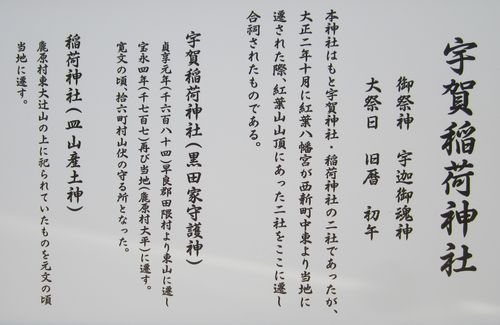 宇賀稲荷神社
御祭神 宇迦御魂神
大祭日 旧暦 初午
本神社はもと宇賀神社・稲荷神社の二社であったが、
大正二年十月に紅葉八幡宮が西新町中東より当地に
遷された際、紅葉山山頂にあった二社をここに遷し
合祠されたものである。
宇賀稲荷神社(黒田家守護神)
貞享元年(千六百八十四)早良郡田隈村より東山に遷し
宝永四年(千七百七)再び当地(鹿原村大平)に遷す。
寛文の頃、拾六町村山伏の守る所となった。
稲荷神社(皿山産土神)
鹿原村東大辻山の上に祀られていたものを元文の頃
当地に遷す。